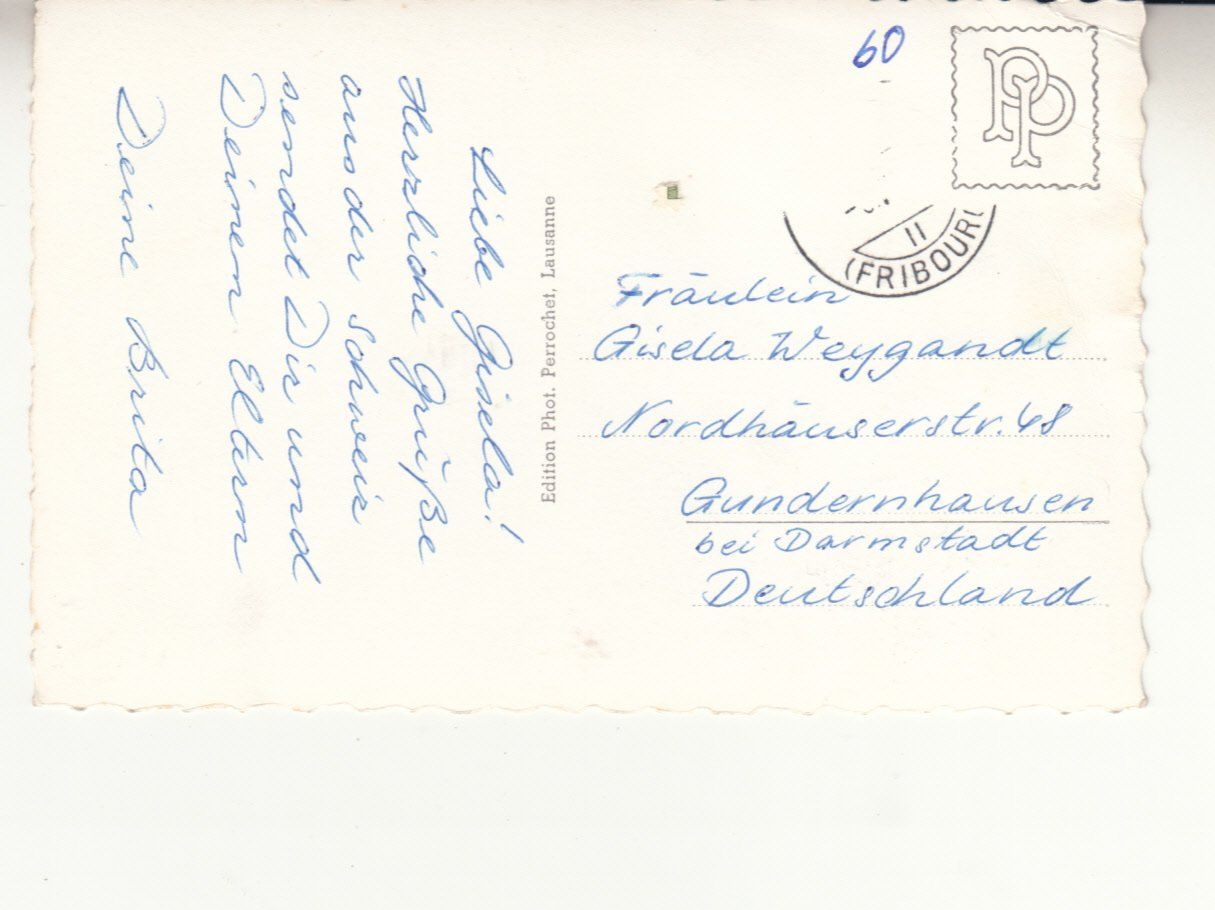 Liebe Gisela!
Herzliche Grüße
aus der Schweiz
sendet Dir und
Deinen Eltern
Deine Brita
Edition Phot. Perrochet, Lausanne
60
PP
II
(FRIBOUR
Fräulein
Gisela Weygandt
Nordhäuserstr. 48
Gundernhausen
bei Darmstadt
Deutschland